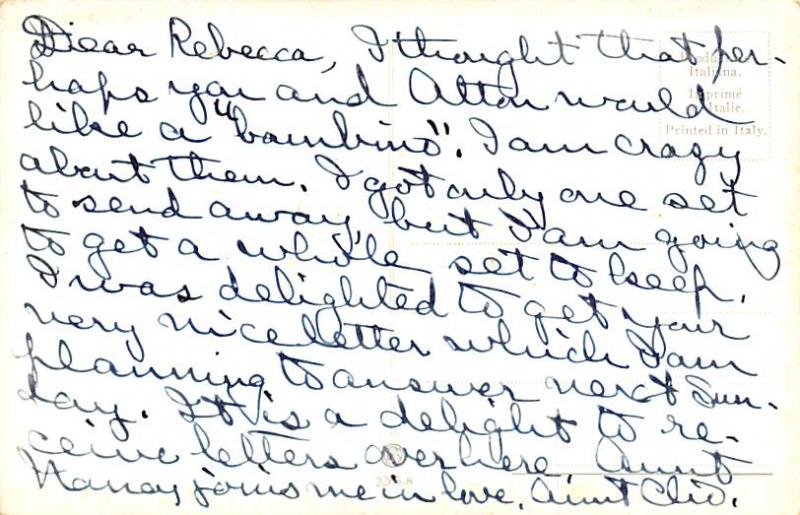 Dear Rebecca, I thought that per-
haps you and Alton would
like a "bambino". I am crazy
about them. I got only one set
to send away, but I am going
to get a whole set to keep.
I was delighted to get your
very nice letter which I am
planning to answer next Sun-
day. It is a delight to re-
ceive letters over here. Aunt
Nancy joins me in love. Aunt Clio.
Italiana.
Imprimé
Italie.
Printed in Italy.